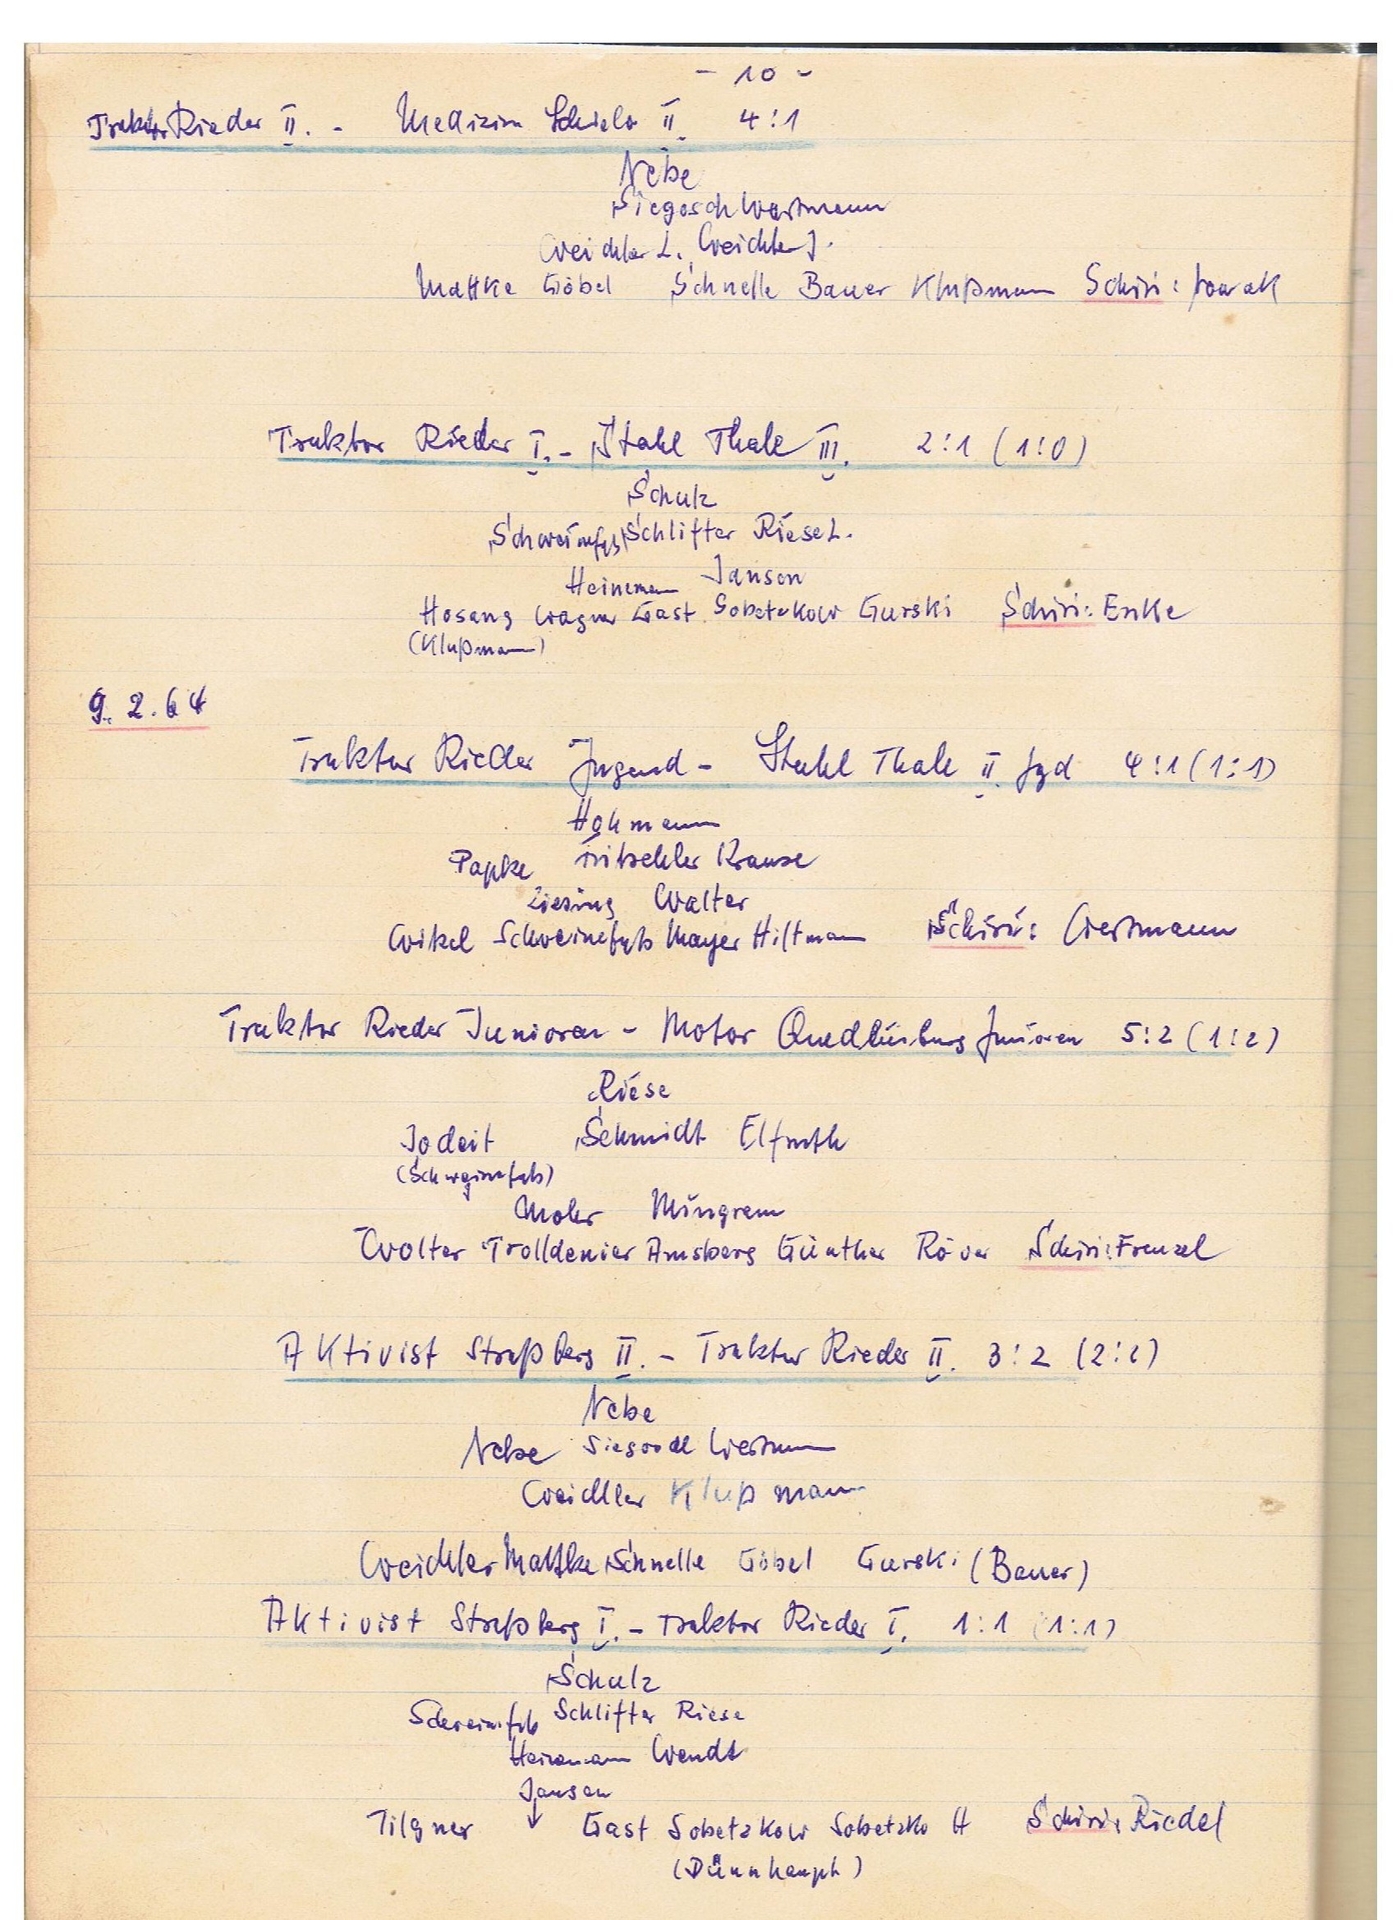 - 10 -
Traktor Rieder II. - Medizin Schielo II. 4:1
Nebe
Siegosch Wertmann
Weichler L. Weichler J.
Mattke Göbel Schnelle Bauer Klußmann Schiri: Nowak
Traktor Rieder I. - Stahl Thale III. 2:1 (1:0)
Schulz
Schweinefuß Schlifter Riese L.
Heinemann Janson
Hosang Wagner Gast Sobetzkow Gurski Schiri: Enke
(Klußmann)
9.2.64
Traktor Rieder Jugend - Stahl Thale II. Jgd 4:1 (1:1)
Hohmann
Papke Fritschler Krause
Ziesing Walter
Wikel Schweinefuß Mayer Hiltmann Schiri: Wertmann
Traktor Rieder Junioren - Motor Quedlinburg Junioren 5:2 (1:2)
Riese
Jodeit Schmidt Elfroth
(Schweinefuß)
Moler Mingram
Wolter Trolldenier Amsberg Günther Röver Schiri: Frenzel
Aktivist Straßberg II. - Traktor Rieder II. 3:2 (2:2)
Nebe
Nebe Wertmann
Weichler Klußmann
Weichler Mattke Schnelle Göbel Gurski (Bauer)
Aktivist Straßberg I. - Traktor Rieder I. 1:1 (1:1)
Schulz
Schweinefuß Schlifter Riese
Heinemann Wendt
Janson
Tilgner ↓ Gast Sobetzkow Sobetzko H Schiri: Riedel
(Dünnhaupt)